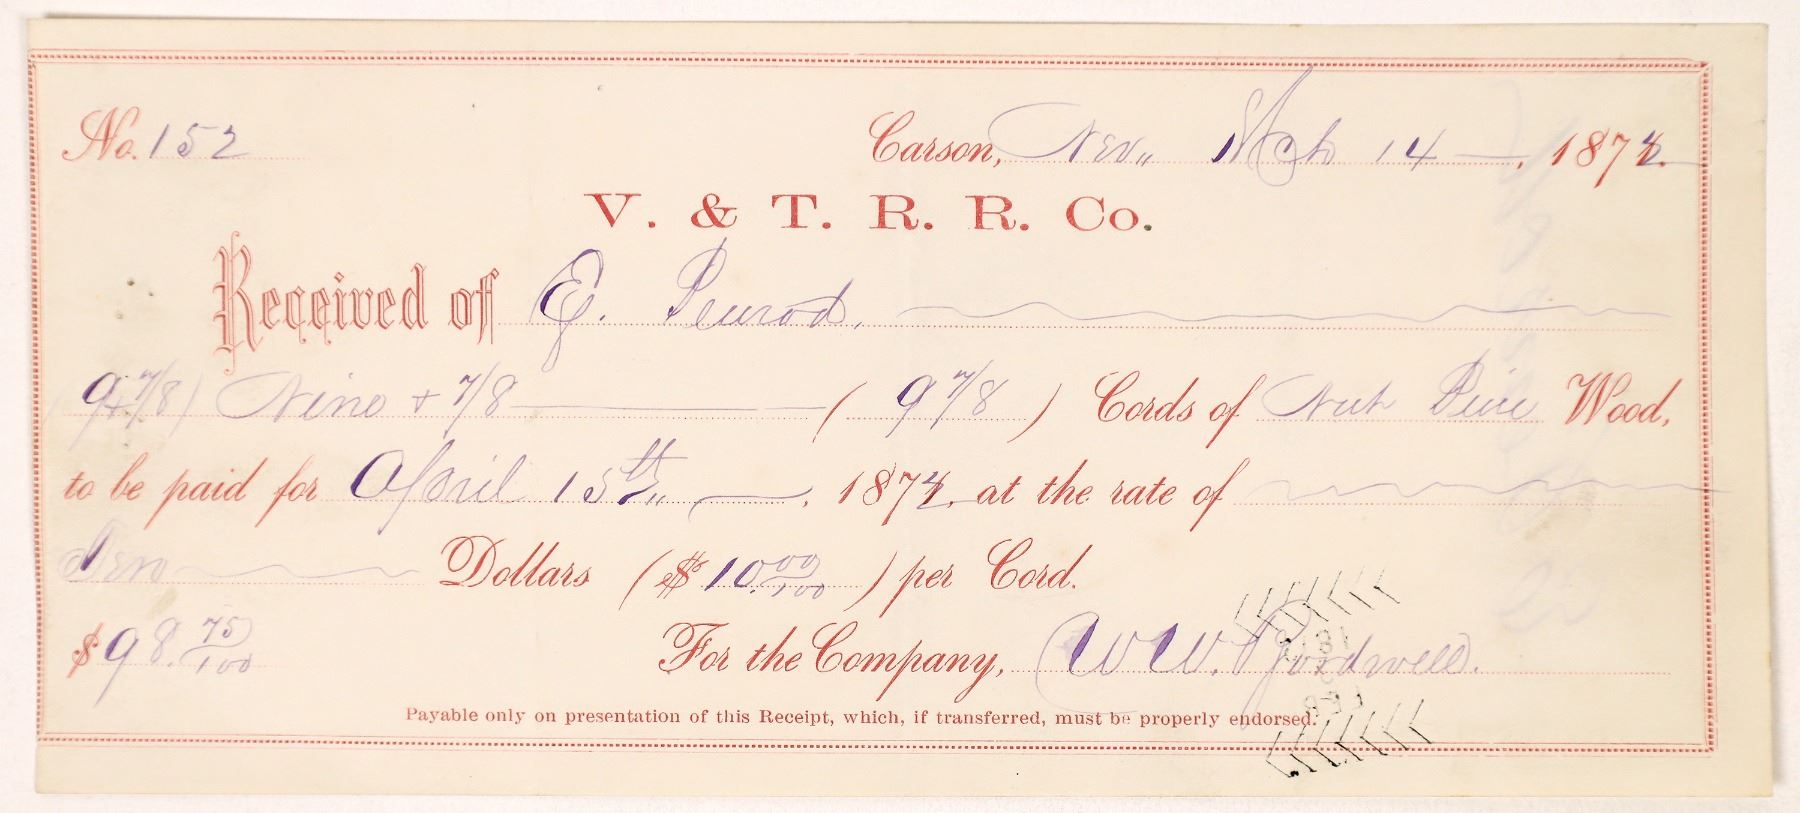 No. 152 Carson, Nev., Mch 14 1872.
V. & T. R. R. Co.
Received of E. Penrod.
(9 7/8) Nine + 7/8 ( 9 7/8 ) Cords of Nut Pine Wood,
to be paid for April 15th, 1872. at the rate of
Ten Dollars ($10.00/100) per Cord.
$98.75/100 For the Company, W W. Bordwell.
Payable only on presentation of this Receipt, which, if transferred, must be properly endorsed.